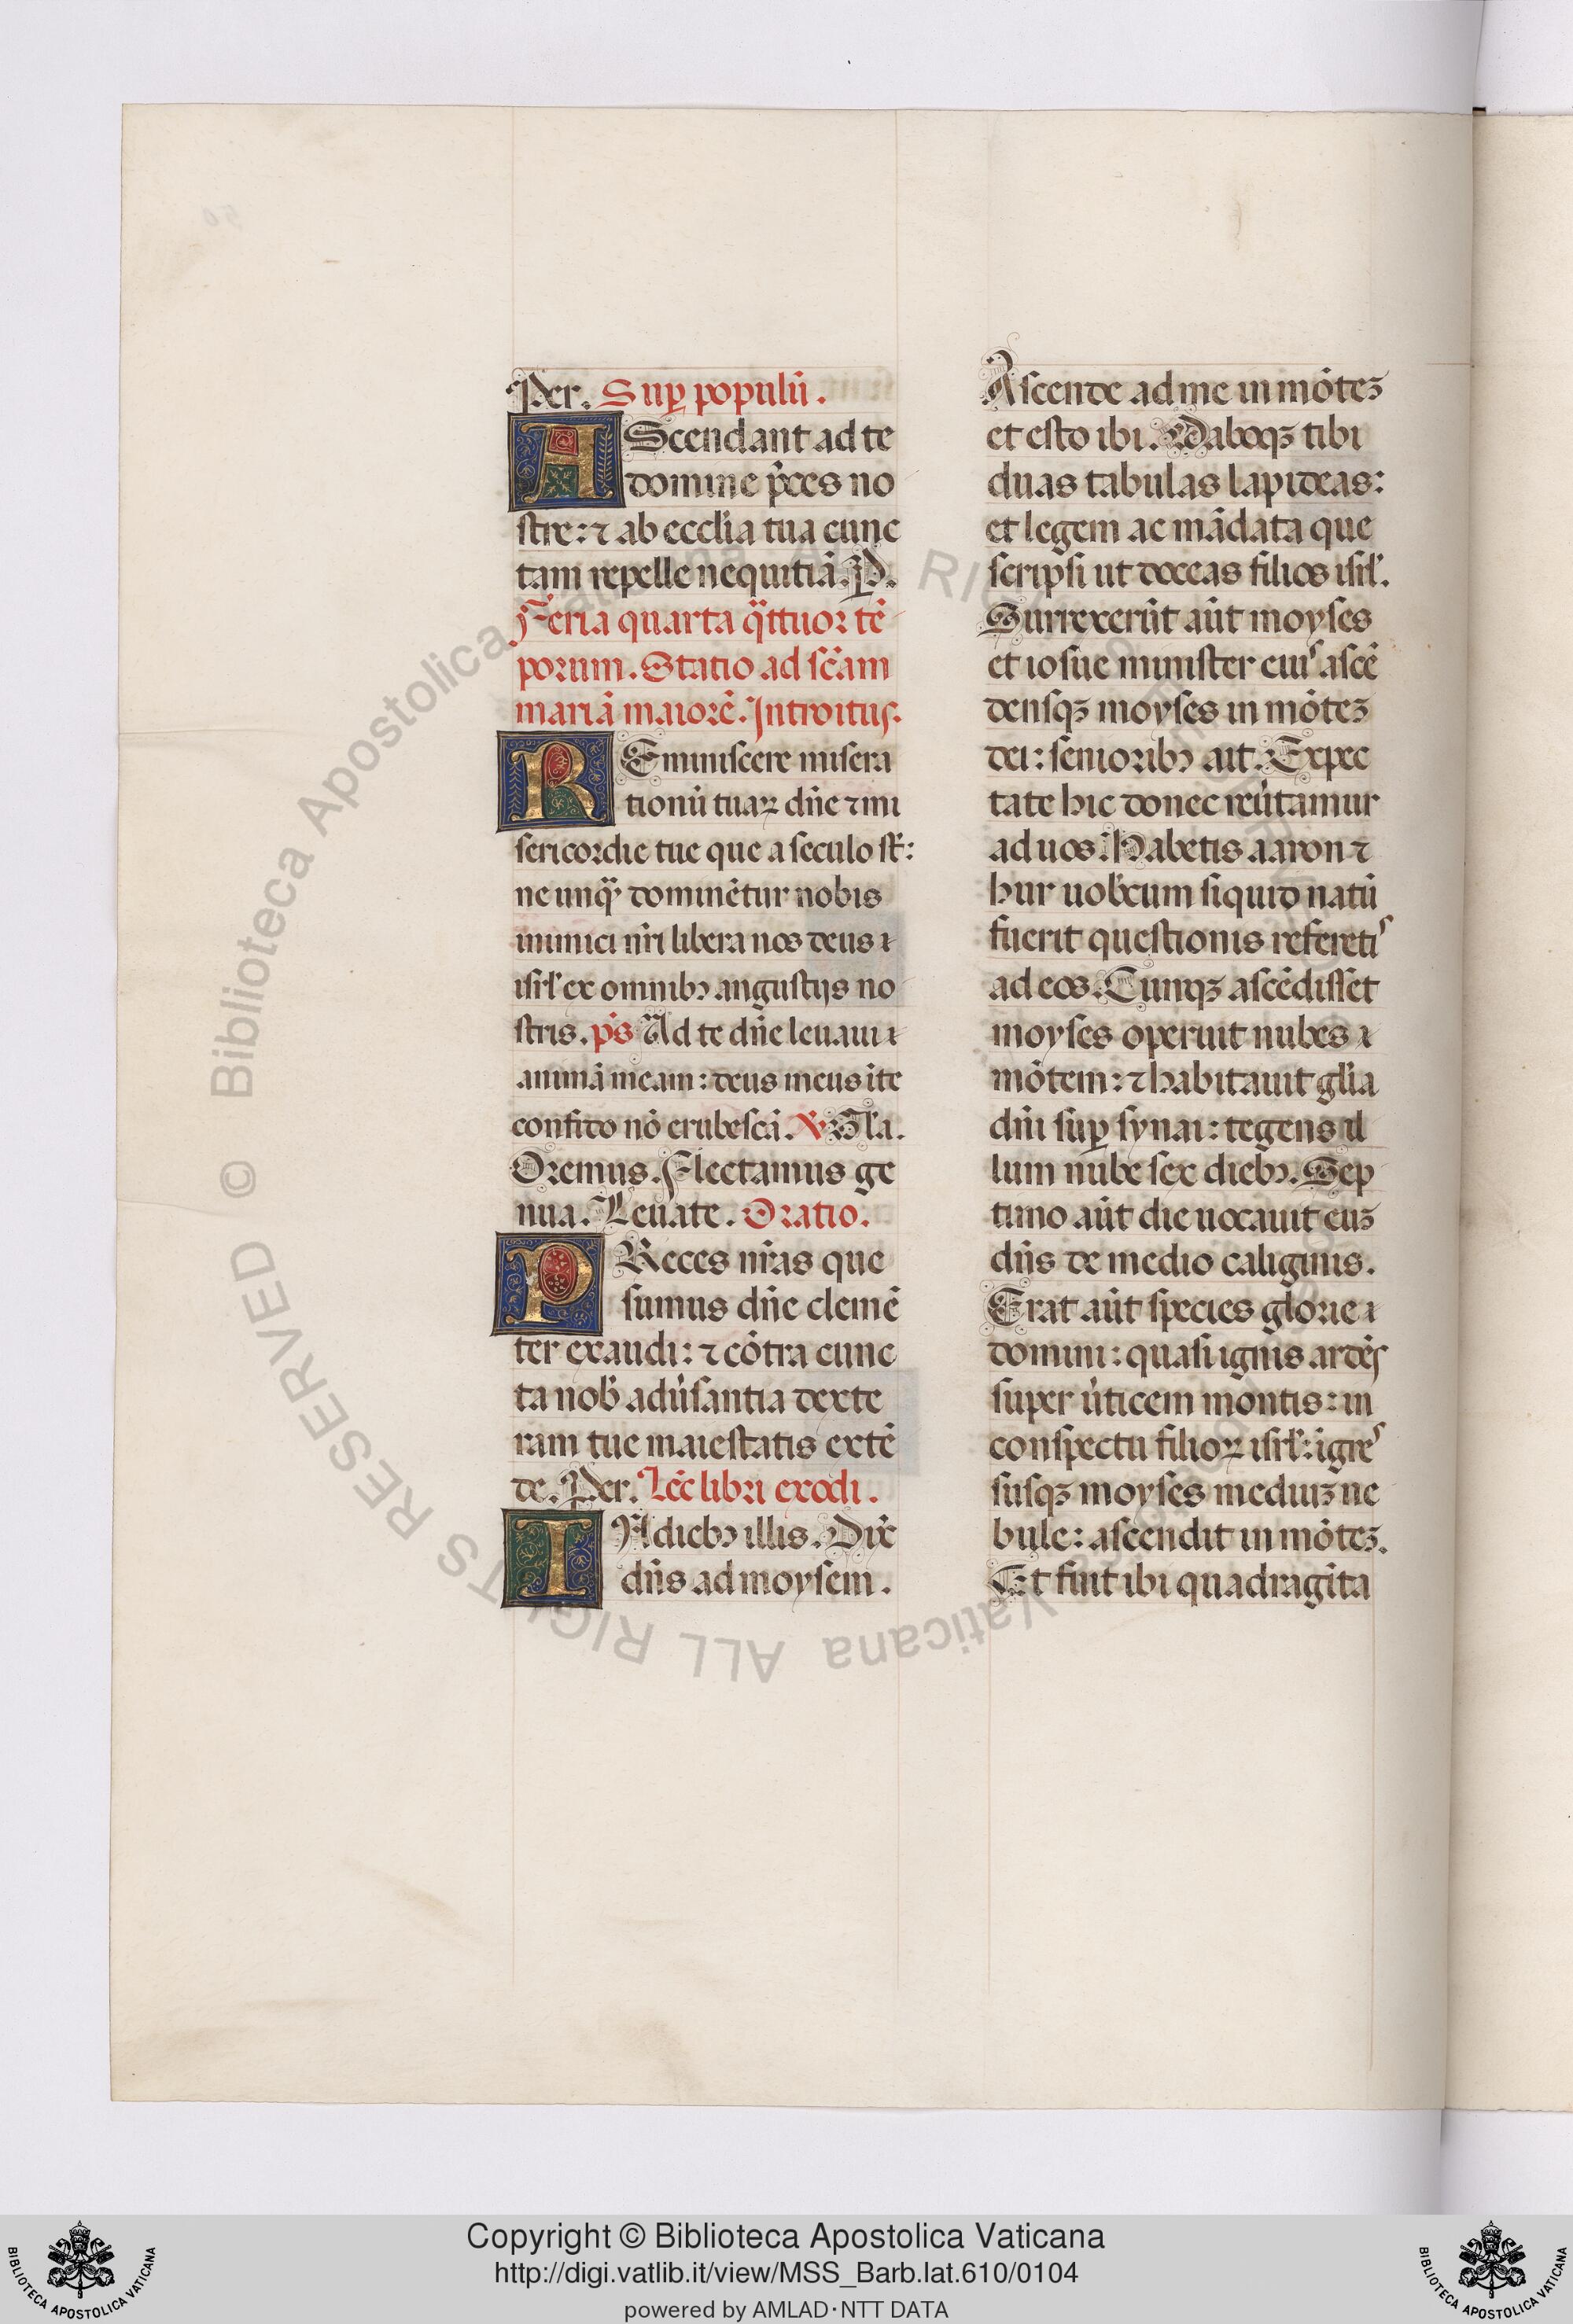 Per. Sup̱ populū.
AScendant ad te
domine p̄ces no
stre: ⁊ ab eccl̄ia tua cunc
tam repelle nequitiā. P.
Feria quarta q̈ttuor tē
porum. Statio ad sc̄am
mariā maiorē. Introitus.
REminiscere misera
tionū tuaꝝ dn̄e ⁊ mi
sericordie tue que a seculo st̄:
ne unq̈ꝫ dominētur nobis
inimici nr̄i libera nos deus
isrl̄ ex omnibꝰ angustijs no
stris. p̄s Ad te dn̄e leuaui
animā meam: deus meus ī te
confido nō erubescā. ℣ Gl̄a.
Oremus. Flectamus ge
nua. Leuate. Oratio.
PReces nr̄as que
sumus dn̄e clemē
ter exaudi: ⁊ cōtra cunc
ta nob̄ adūsantia dexte
ram tue maiestatis extē
de. Per. Lēc libri exodi.
IN diebꝰ illis. Dix̄
dn̄s ad moysem.
Ascende ad me in mōteꝫ
et esto ibi. Daboqꝫ tibi
duas tabulas lapideas:
et legem ac mādata que
scripsi ut doceas filios isrl̄.
Surrexerūt aūt moyses
et iosue minister eiuˢ ascē
densqꝫ moyses in mōteꝫ
dei: senioribꝰ ait. Expec
tate hic donec reūtamur
ad uos. Habetis aaron ⁊
hur uob̄cum siquid natū
fuerit questionis referetiˢ
ad eos. Cunqꝫ ascēdissēt
moyses operuit nubes
mōtem: ⁊ habitauit gl̄ia
dn̄i sup̱ synai: tegens il
lum nube sex diebꝰ. Sep
timo aūt die uocauit euꝫ
dn̄s de medio caliginis.
Erat aūt species glorie
domini: quasi ignis ardēs
super ūticem montis: in
conspectu filioꝝ isrl̄: īgreˢ
susqꝫ moyses mediuꝫ ne
bule: ascendit in mōteꝫ.
Et fuit ibi quadragīta
© Biblioteca Apostolica Vaticana ALL RIGHTS RESERVED
Copyright © Biblioteca Apostolica Vaticana
http://digi.vatlib.it/view/MSS_Barb.lat.610/0104
powered by AMLAD·NTT DATA
BIBLIOTECA APOSTOLICA VATICANA
BIBLIOTECA APOSTOLICA VATICANA